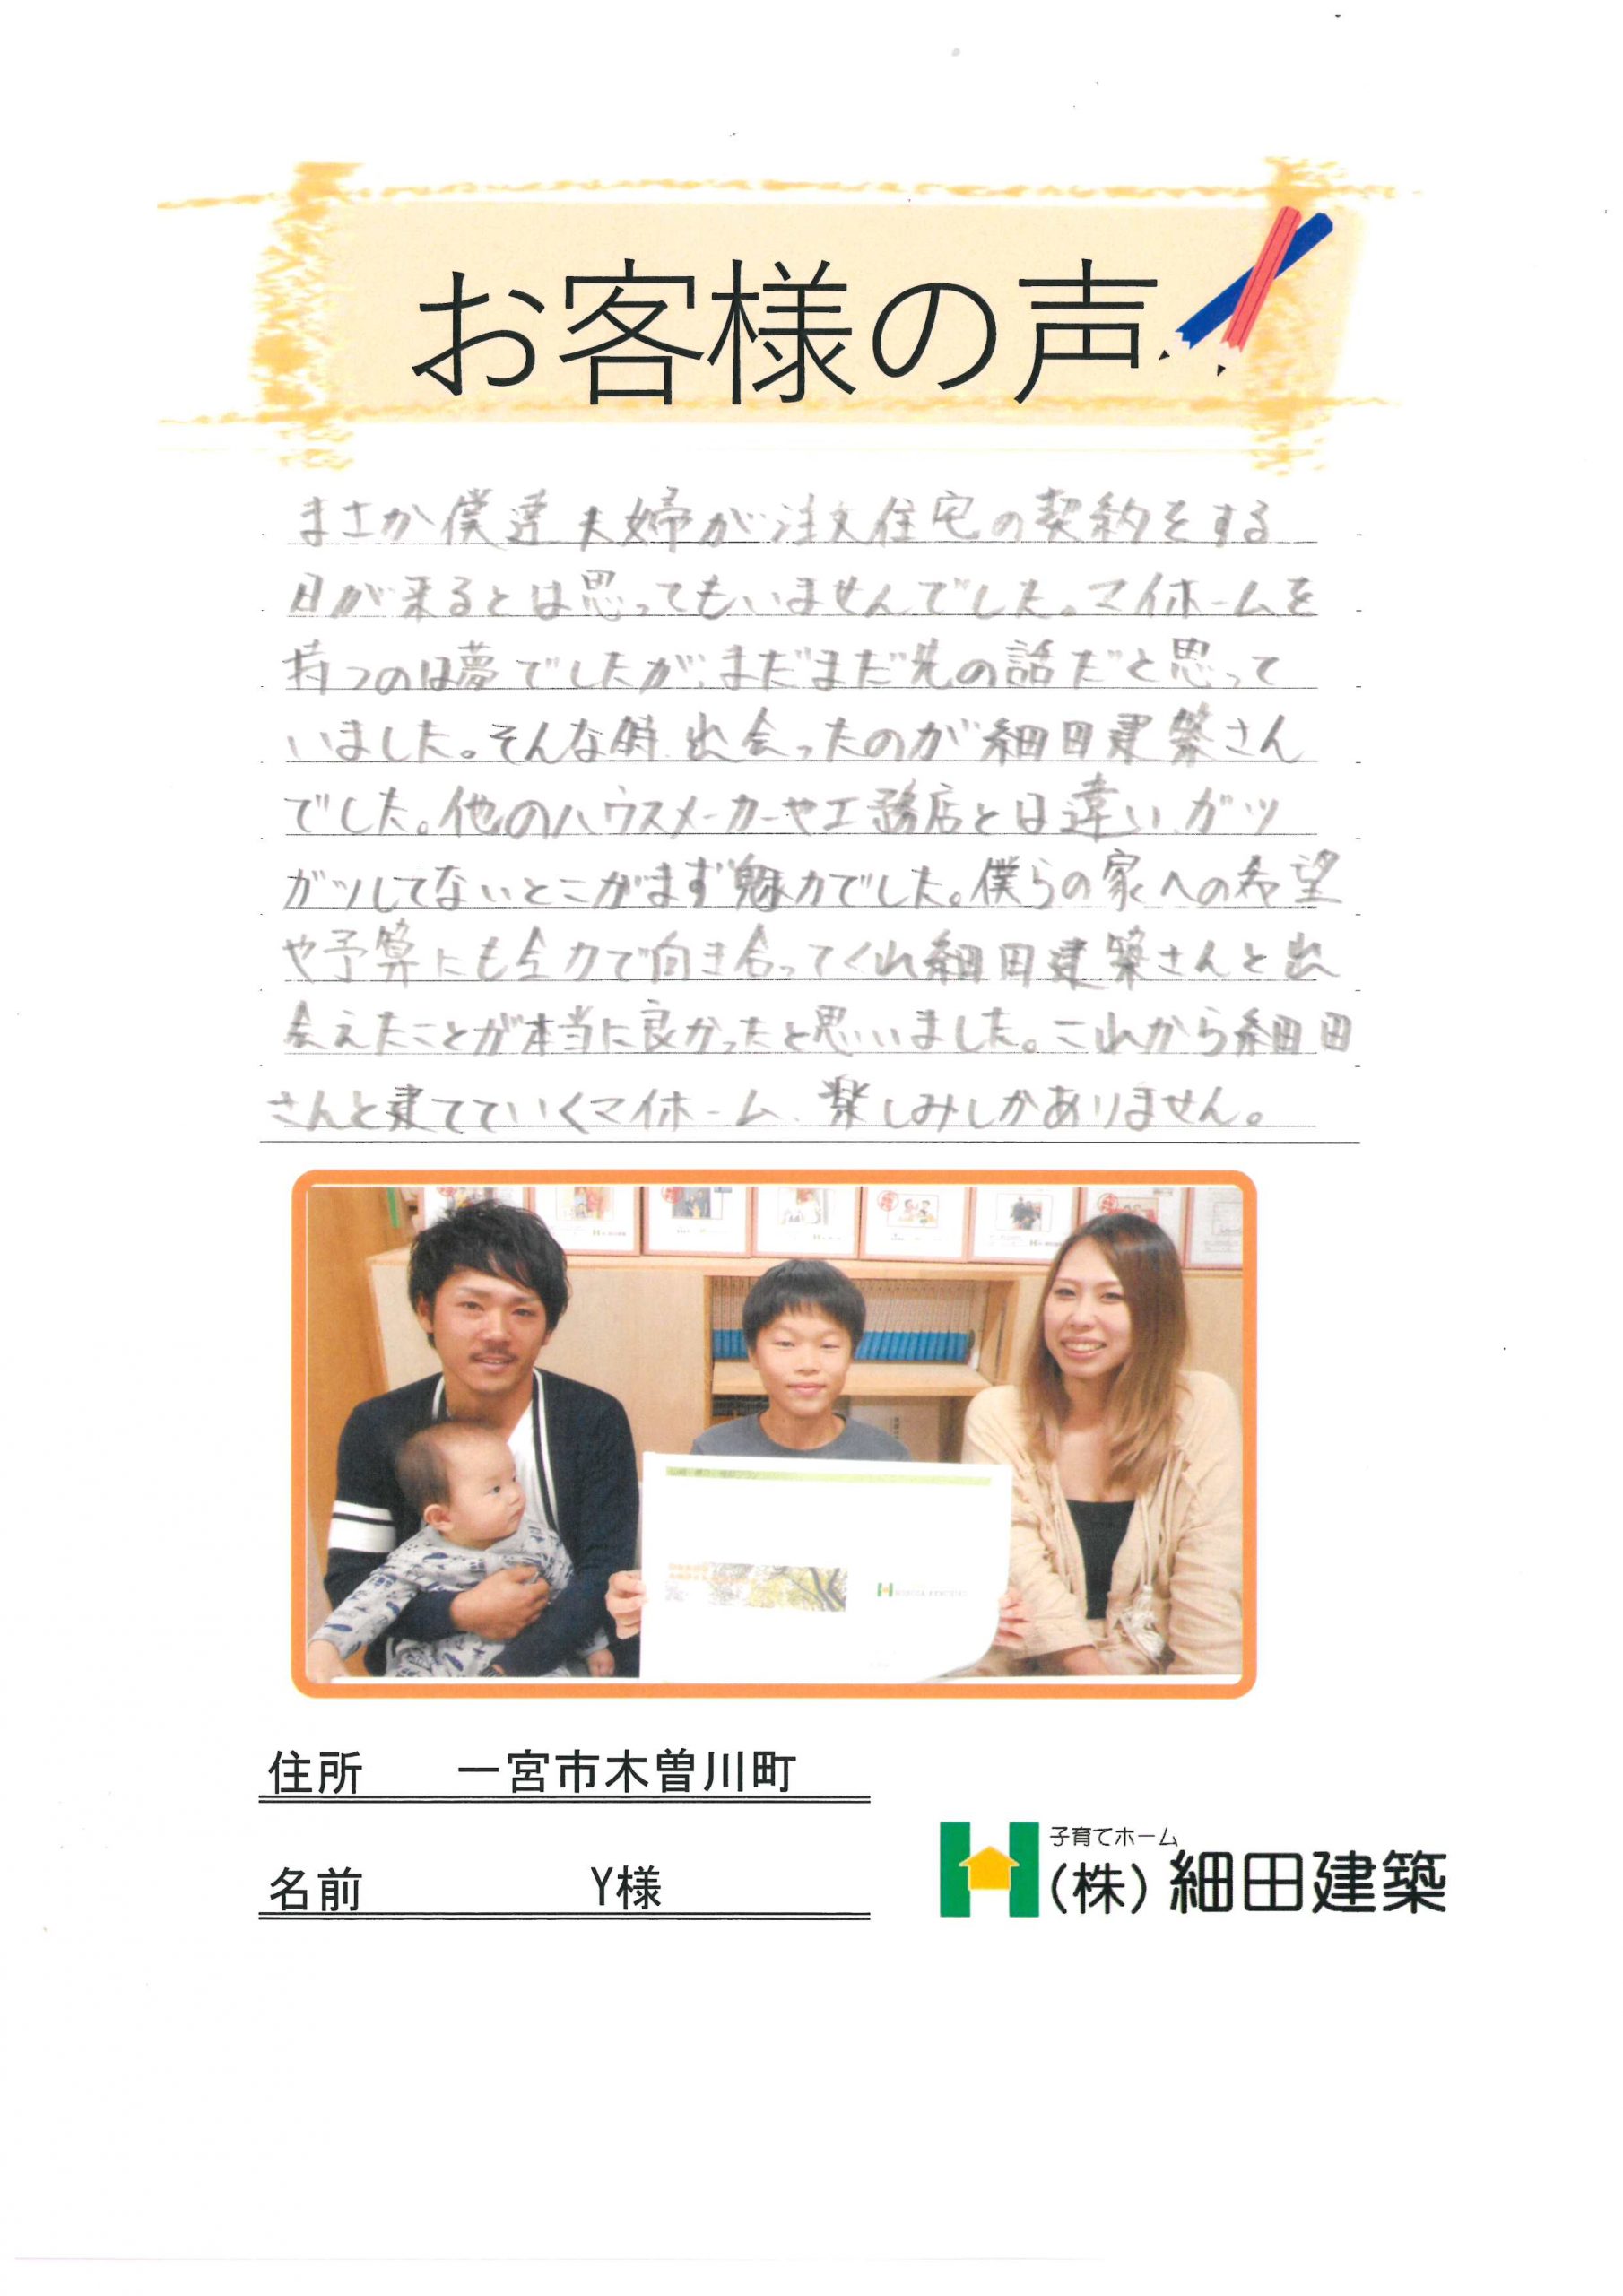 お客様の声
まさか僕達夫婦が注文住宅の契約をする
日が来るとは思ってもいませんでした。マイホームを
持つのは夢でしたが、まだまだ先の話だと思って
いました。そんな時、出会ったのが細田建築さん
でした。他のハウスメーカーや工務店とは違い、ガツ
ガツしてないとこがまず魅力でした。僕らの家への希望
や予算にも全力で向き合ってくれ細田建築さんと出
会えたことが本当に良かったと思いいました。これから細田
さんと建てていくマイホーム、楽しみしかありません。
住所 一宮市木曽川町
名前 Y様
子育てホーム
(株)細田建築